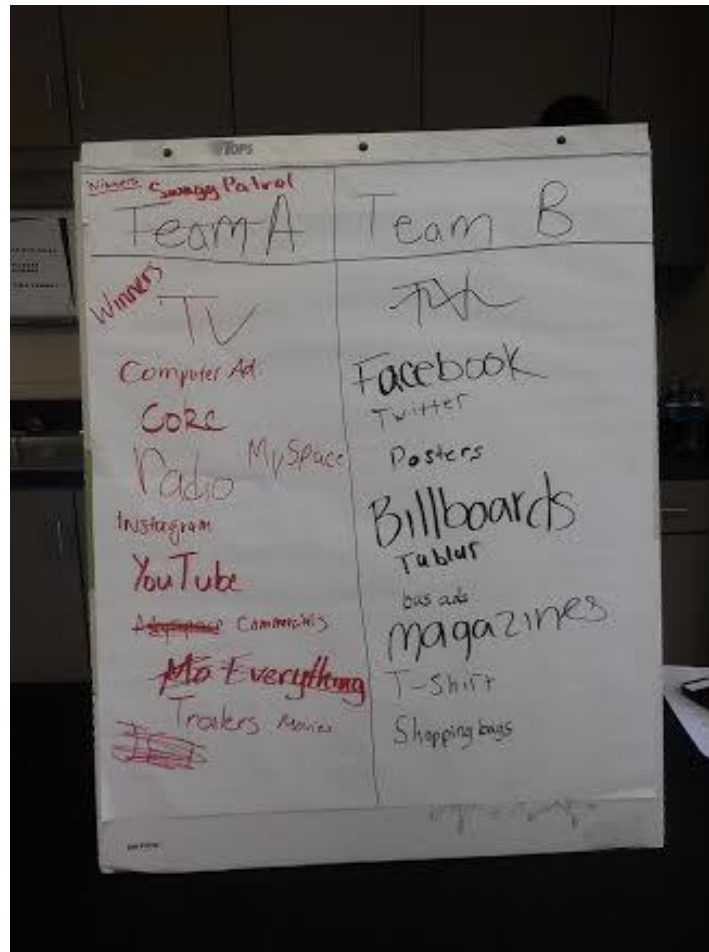 TOPS
Winners Swagg Patrol
Team A
Team B
Winners
TV
Computer Ad
Core
Radio MySpace
Instagram
YouTube
Commercials
Everything
Trailers Movies
Facebook
Twitter
Posters
Billboards
Tublur
bus ads
magazines
T-Shirt
Shopping bags